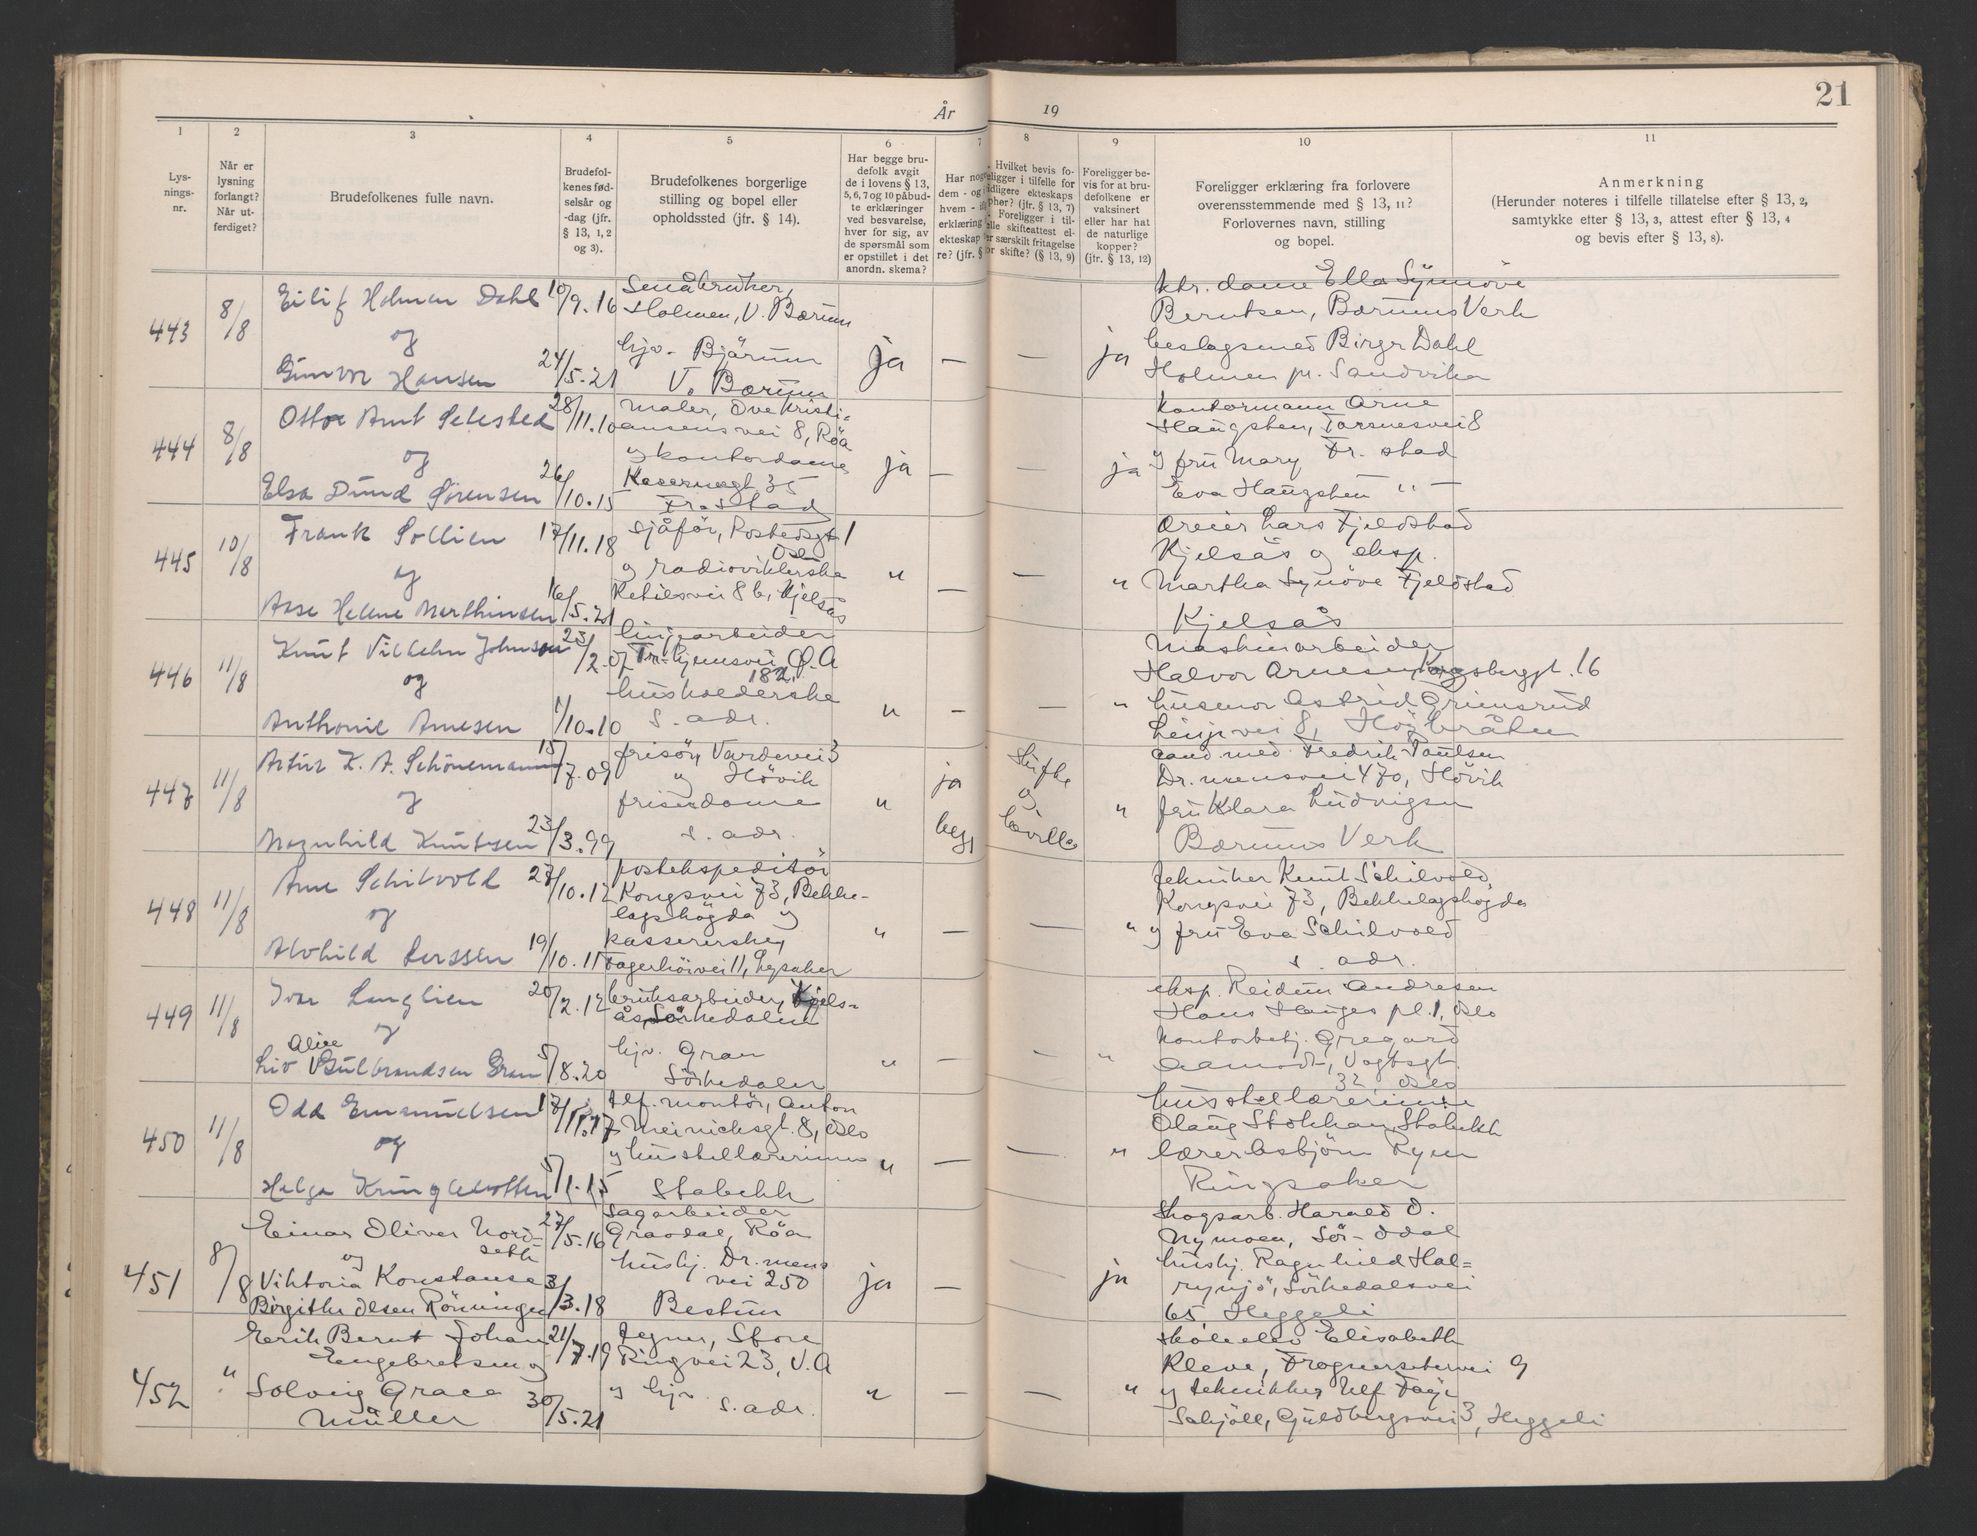 År 19
21
1 2 3 4 5 6 7 8 9 10 11
Lys-
nings-
nr.
Når er
lysning
forlangt?
Når ut-
ferdiget?
Brudefolkenes fulle navn.
Brudefol-
kenes fød-
selsår og
-dag (jfr.
§ 13, 1, 2
og 3).
Brudefolkenes borgerlige
stilling og bopel eller
opholdssted (jfr. § 14).
Har begge bru-
defolk avgit
de i lovens § 13,
5, 6, 7 og 10 påbud-
te erklæringer
ved besvarelse,
hver for sig, av
de spørsmål som
er opstillet i det
anordn. skema?
Har nog
dem - og i
hvem -
erklæring
ekteskap
re? (jfr. §
Hvilket bevis fo-
religger i tilfelle for
tidligere ekteskaps
ophør? (jfr. § 13, 7)
- Foreligger i til-
felle skifteattest el-
ler særskilt fritagelse
for skifte? (§ 13, 9)
Foreligger be-
vis for at bru-
defolkene er
vaksinert
eller har hat
de naturlige
kopper?
(jfr. § 13, 12)
Foreligger erklæring fra forlovere
overensstemmende med § 13, 11?
Forlovernes navn, stilling
og bopel.
Anmerkning
(Herunder noteres i tilfelle tillatelse efter § 13, 2,
samtykke efter § 13, 3, attest efter § 13, 4
og bevis efter § 13, 8).
443 8/8
Eilif Holmen Dahl 10/9.16
og
Gunvor Hansen 24/5.21
Småbruker,
Holmen, V. Bærum
hjv. Bjärum
V. Bærum
ja — — ja
ktr. dame Ella Synnöve
Berntsen, Bærums Verk
beslagsmed Birger Dahl
Holmen pr. Sandvika
444 8/8
Otto Arnt Sehested 28/11.10
og
Elsa Dund Sørensen 26/10.15
Maler, Ove Kristi-
ansensvei 8, Röa
og kontordame
Kasernegt 35
Fr.stad
ja — — ja
Kontormann Arne
Haugsten, Torsnesvei 8
og fru Mary Fr. stad
Eva Haugsten " —
445 10/8
Frank Sollien 17/11.18
og
Aase Helene Marthinsen 16/5.21
Sjåför, Rostedsgt 1
Oslo
og radioviklerske
Ketilsvei 8b, Kjelsås
" — — "
Lars Fjeldstad
Kjelsås og eksp.
Martha Synöve Fjeldstad
Kjelsås
446 11/8
Knut Vilhelm Johnsen 23/2.07
og
Anthonie Arnesen 1/10.10
linjearbeider
Tr.hjemsvei, Ö.A
182,
husholderske
s. adr.
" — — "
Maskinarbeider
Halvor Arnesen, Kongsberggt. 16
husmor Astrid Grimsrud
Linjevei 8, Höybråten
447 11/8
Artur K. A. Schönemann 15/7.09
og
Magnhild Knutsen 23/3.99
frisör, Vardevei 3
og Hövik
friserdame
s. adr.
" ja
begg
Skifte
og
bevilla
"
cand. med. Fredrik Paulsen
Dr.mensvei 470, Hövik
fru Klara Ludvigsen
Bærums Verk
448 11/8
Arne Schilvold 27/10.12
og
Alvhild Larssen 19/10.15
postekspeditör
Kongsvei 73, Bekke-
lagshögda og
kassererske,
Fagerhöivei 11, Lysaker
" — — "
tekniker Knut Schilvold,
Kongsvei 73, Bekkelagshögda
og fru Eva Schilvold
s. adr.
449 11/8
Ivar Langlien 20/2.12
og
Alice
Liv V Gulbrandsen Gran 5/8.20
bruksarbeider, Kjels-
ås, Sörkedalen
hjv. Gran
Sörkedalen
" — — "
eksp. Reidun Andresen
Hans Hauges pl. 1, Oslo
Kontorbetj. Gregard
Aamodt, Vogtsgt.
32, Oslo
450 11/8
Odd Emanuelsen 17/11.17
og
Helga Kringlebotten 5/1.15
tlf. montör, Anton
Meinichsgt. 8, Oslo
og husstellærerinne
Stabekk
" — — "
husstellærerinne
Olaug Stokkan, Stabekk
lærer Asbjörn Ryen
Ringsaker
451 8/8
Einar Oliver Nord- 27/5.16
seth
og
Viktoria Konstanse 3/3.18
Birgithe Olsen Rönningen
Sagarbeider
Graadal, Röa
hushj. Dr.mens
vei 250
Bestum
ja — ja
skogsarb. Harald O.
Nymoen, Sör-Odal
hushj. Ragnhild Hal=
rynjö, Sörkedalsvei
65, Heggeli
452 "
Erik Bernt Johan 21/7.19
Engebretsen og
Solveig Grace 30/5.21
Müller
tegner, Store
Ringvei 23, V.A
og hjv.
s. adr.
" — — "
skoleelev Elisabeth
Kleve, Frognersetervei 9
og tekniker Ulf Faye
Schjöll, Guldbergsvei 3, Heggeli